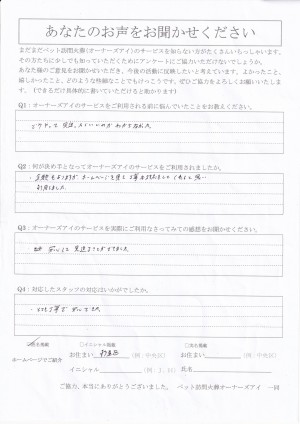 あなたのお声をお聞かせください
まだまだペット訪問火葬(オーナーズアイ)のサービスを知らない方がたくさんいらっしゃいます。
その方たちに少しでも知っていただくためにアンケートにご協力いただけないでしょうか。
あなた様のご意見をお聞かせいただき、今後の活動に反映したいと考えています。よかったこと、
嬉しかったこと、どのような些細なことでもけっこうです。ぜひご協力をよろしくお願いいたしま
す。（できるだけ具体的に書いていただけると助かります）
Q1：オーナーズアイのサービスをご利用される前に悩んでいたことをお教えください。
どうやって見送ってよいのかわからなかった。
Q2：何が決め手となってオーナーズアイのサービスをご利用されましたか。
Q3：オーナーズアイのサービスを実際にご利用なさってみての感想をお聞かせください。
安心して見送ることができました。
Q4：対応したスタッフの対応はいかがでしたか。
とても丁寧で安心でした。
ホームページでご紹介
□匿名掲載 □イニシャル掲載 □実名掲載
お住まい (例：中央区) お住まい (例：中央区)
イニシャル (例：J. H) 氏名
ご協力、本当にありがとうございました。 ペット訪問火葬オーナーズアイ 一同